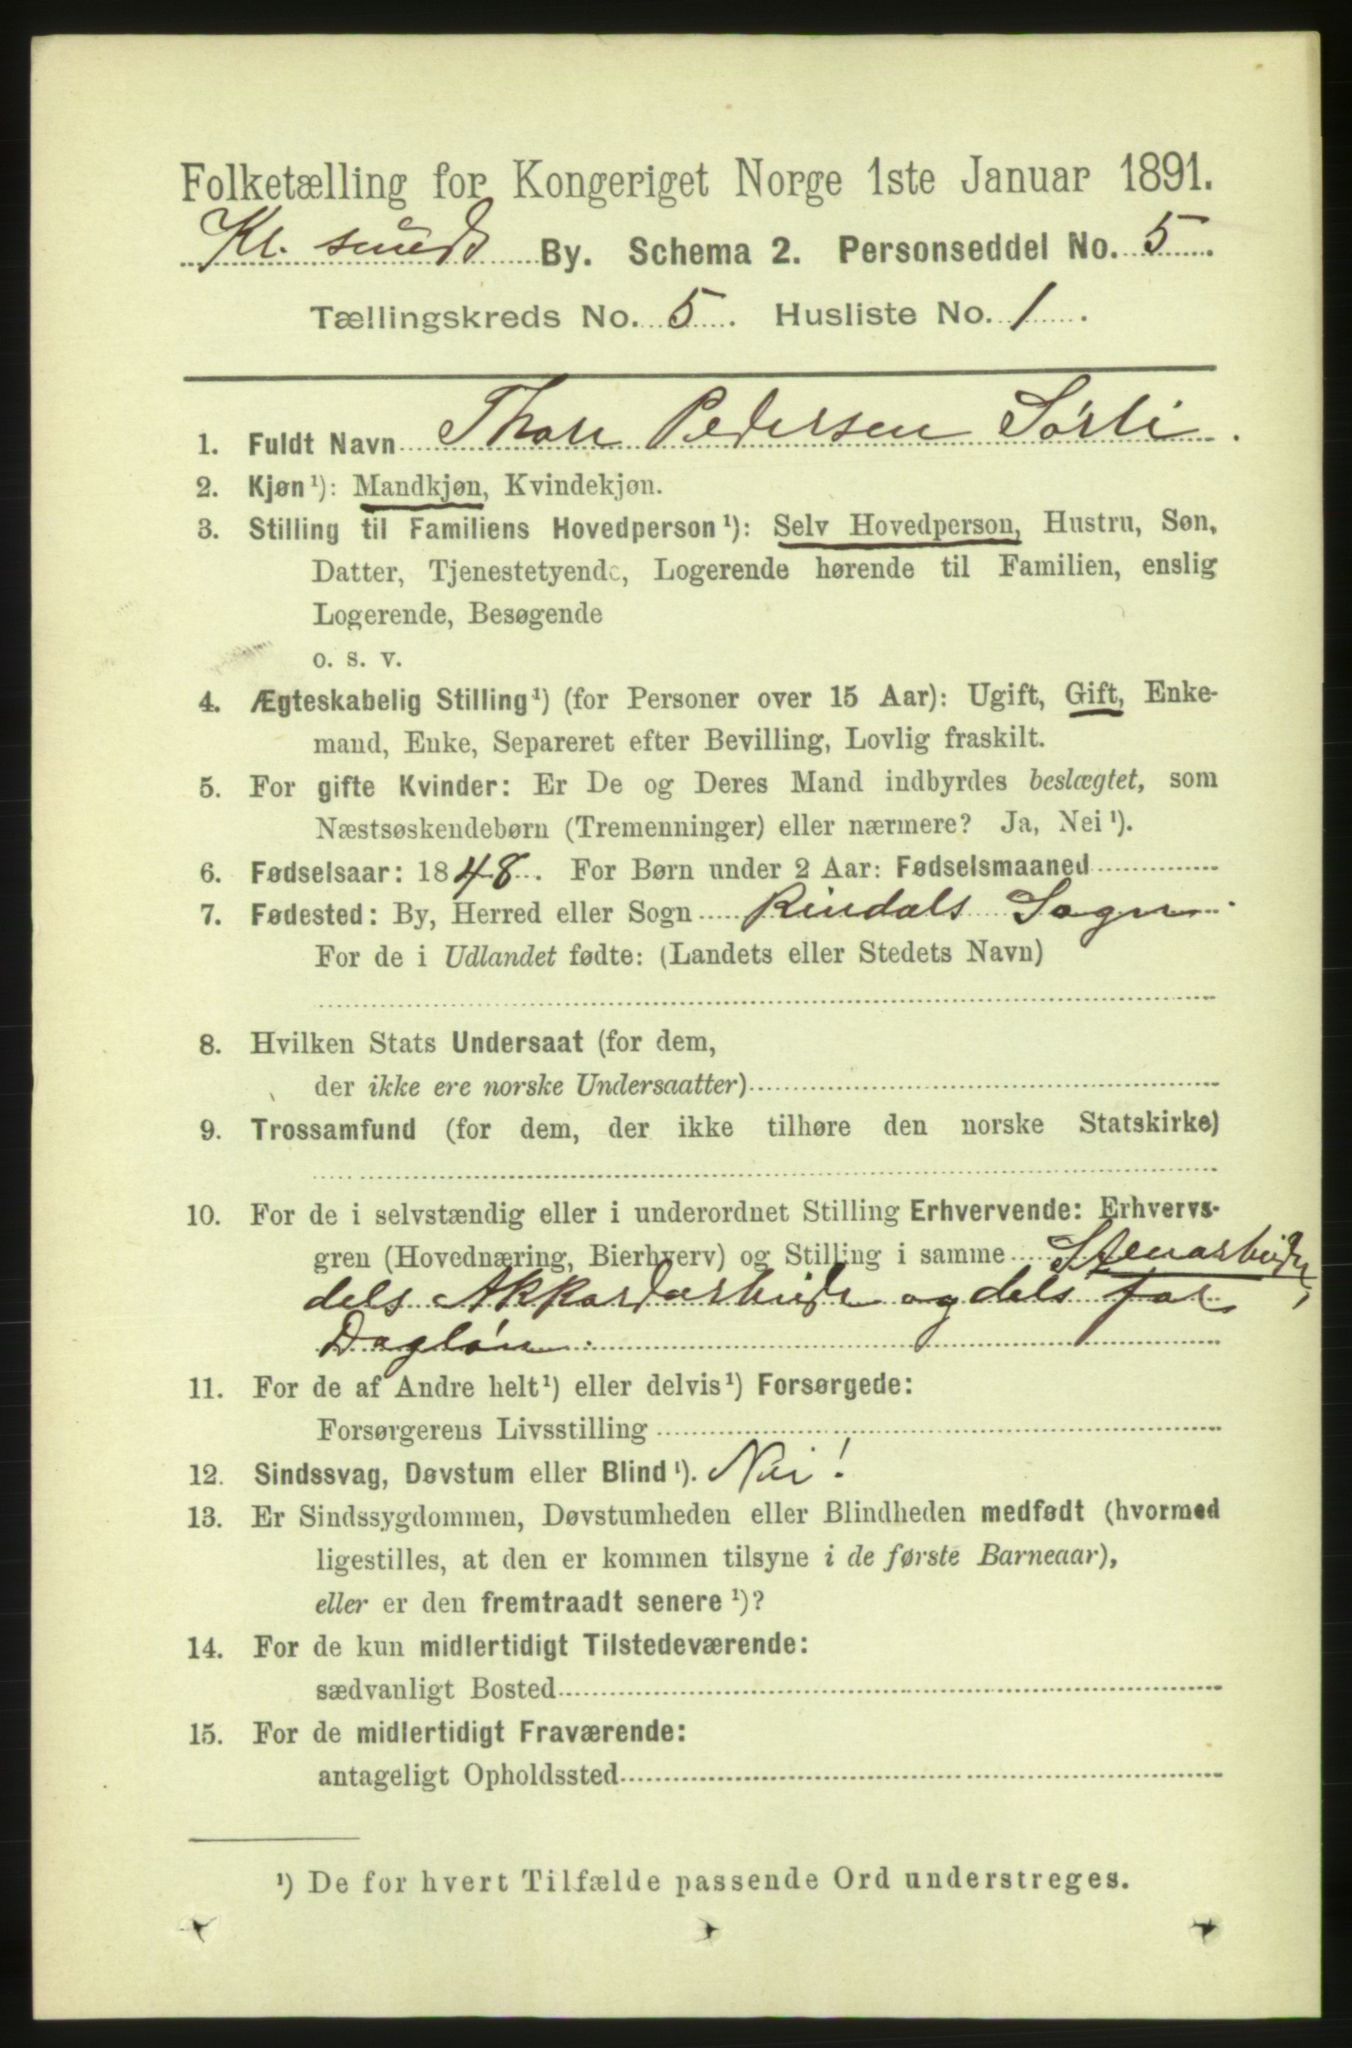 Folketælling for Kongeriget Norge 1ste Januar 1891.
Kr. sund By. Schema 2. Personseddel No. 5.
Tællingskreds No. 5. Husliste No. 1.
1. Fuldt Navn Thore Pedersen Sörli.
2. Kjøn¹): Mandkjøn, Kvindekjøn.
3. Stilling til Familiens Hovedperson¹): Selv Hovedperson, Hustru, Søn,
Datter, Tjenestetyende, Logerende hørende til Familien, enslig
Logerende, Besøgende
o. s. v.
4. Ægteskabelig Stilling¹) (for Personer over 15 Aar): Ugift, Gift, Enke-
mand, Enke, Separeret efter Bevilling, Lovlig fraskilt.
5. For gifte Kvinder: Er De og Deres Mand indbyrdes beslægtet, som
Næstsøskendebørn (Tremenninger) eller nærmere? Ja, Nei¹).
6. Fødselsaar: 1848. For Børn under 2 Aar: Fødselsmaaned
7. Fødested: By, Herred eller Sogn Rindals Sogn.
For de i Udlandet fødte: (Landets eller Stedets Navn)
8. Hvilken Stats Undersaat (for dem,
der ikke ere norske Undersaatter)
9. Trossamfund (for dem, der ikke tilhøre den norske Statskirke)
10. For de i selvstændig eller i underordnet Stilling Erhvervende: Erhvervs-
gren (Hovednæring, Bierhverv) og Stilling i samme Stenarbeider,
dels Akkordarbeide og dels for
Daglön.
11. For de af Andre helt¹) eller delvis¹) Forsørgede:
Forsørgerens Livsstilling
12. Sindssvag, Døvstum eller Blind¹). Nei!
13. Er Sindssygdommen, Døvstumheden eller Blindheden medfødt (hvormed
ligestilles, at den er kommen tilsyne i de første Barneaar),
eller er den fremtraadt senere¹)?
14. For de kun midlertidigt Tilstedeværende:
sædvanligt Bosted
15. For de midlertidigt Fraværende:
antageligt Opholdssted
¹) De for hvert Tilfælde passende Ord understreges.